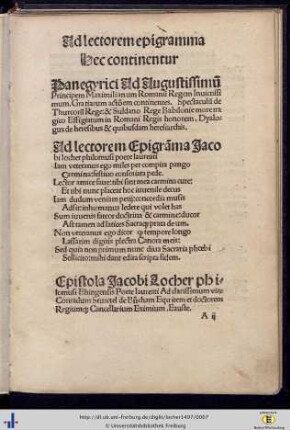 Ad lectorem epigramma
Hec continentur
Panegyrici Ad Augustissimū
Principem Maximilianum Romanū Regem Inuictissi
mum. Gratiarum actiōem continentes. Spectaculū de
Thurcorū Rege: & Suldano Rege Babilonie more tra
gico Effigiatum in Romani Regis honorem. Dyalo
gus de heresibus & quibusdam heresiarchis.
Ad lectorem Epigrāma Jaco
bi locher philomusi poete laureati
Iam veteranus ego miles per compita pango
Carmina: festiuo consona pede.
Lector amice faue: nil sint mea carmina cure:
Et tibi nunc placeat hoc iuuenile decus
Iam dudum venitum concordia musis
Adsit: inhumanus ledere qui volet has
Sum iuuenis fateor doctrina & carmine: ducor
Ast tamen ad latices Sacra prima de um.
Non veteranus ego dicor tempore longo
Lassarim digitis plectra Canora meis:
Sed quis non primum nunc diua Sacraria phœbi
Sollicito: mihi dant edita scripta fidem.
Epistola Jacobi Locher phi-
lomusi Ehingensis Poete laureati Ad clarissimum virū
Conradum Sturtzel de Bůcham Equitem et doctorem
Regiumq; Cancellarium Eximium. Fauste.
A ij
http://dl.ub.uni-freiburg.de/diglit/locher1497/0007
© Universitätsbibliothek Freiburg